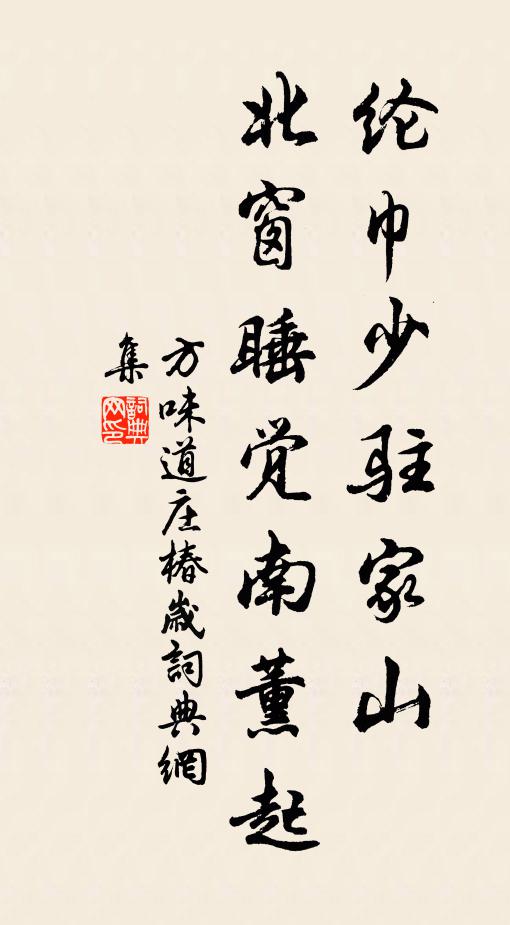 纶巾少驻家山
北窗睡觉南薰起
方味道庄椿岁词典網
集
詞典
网印